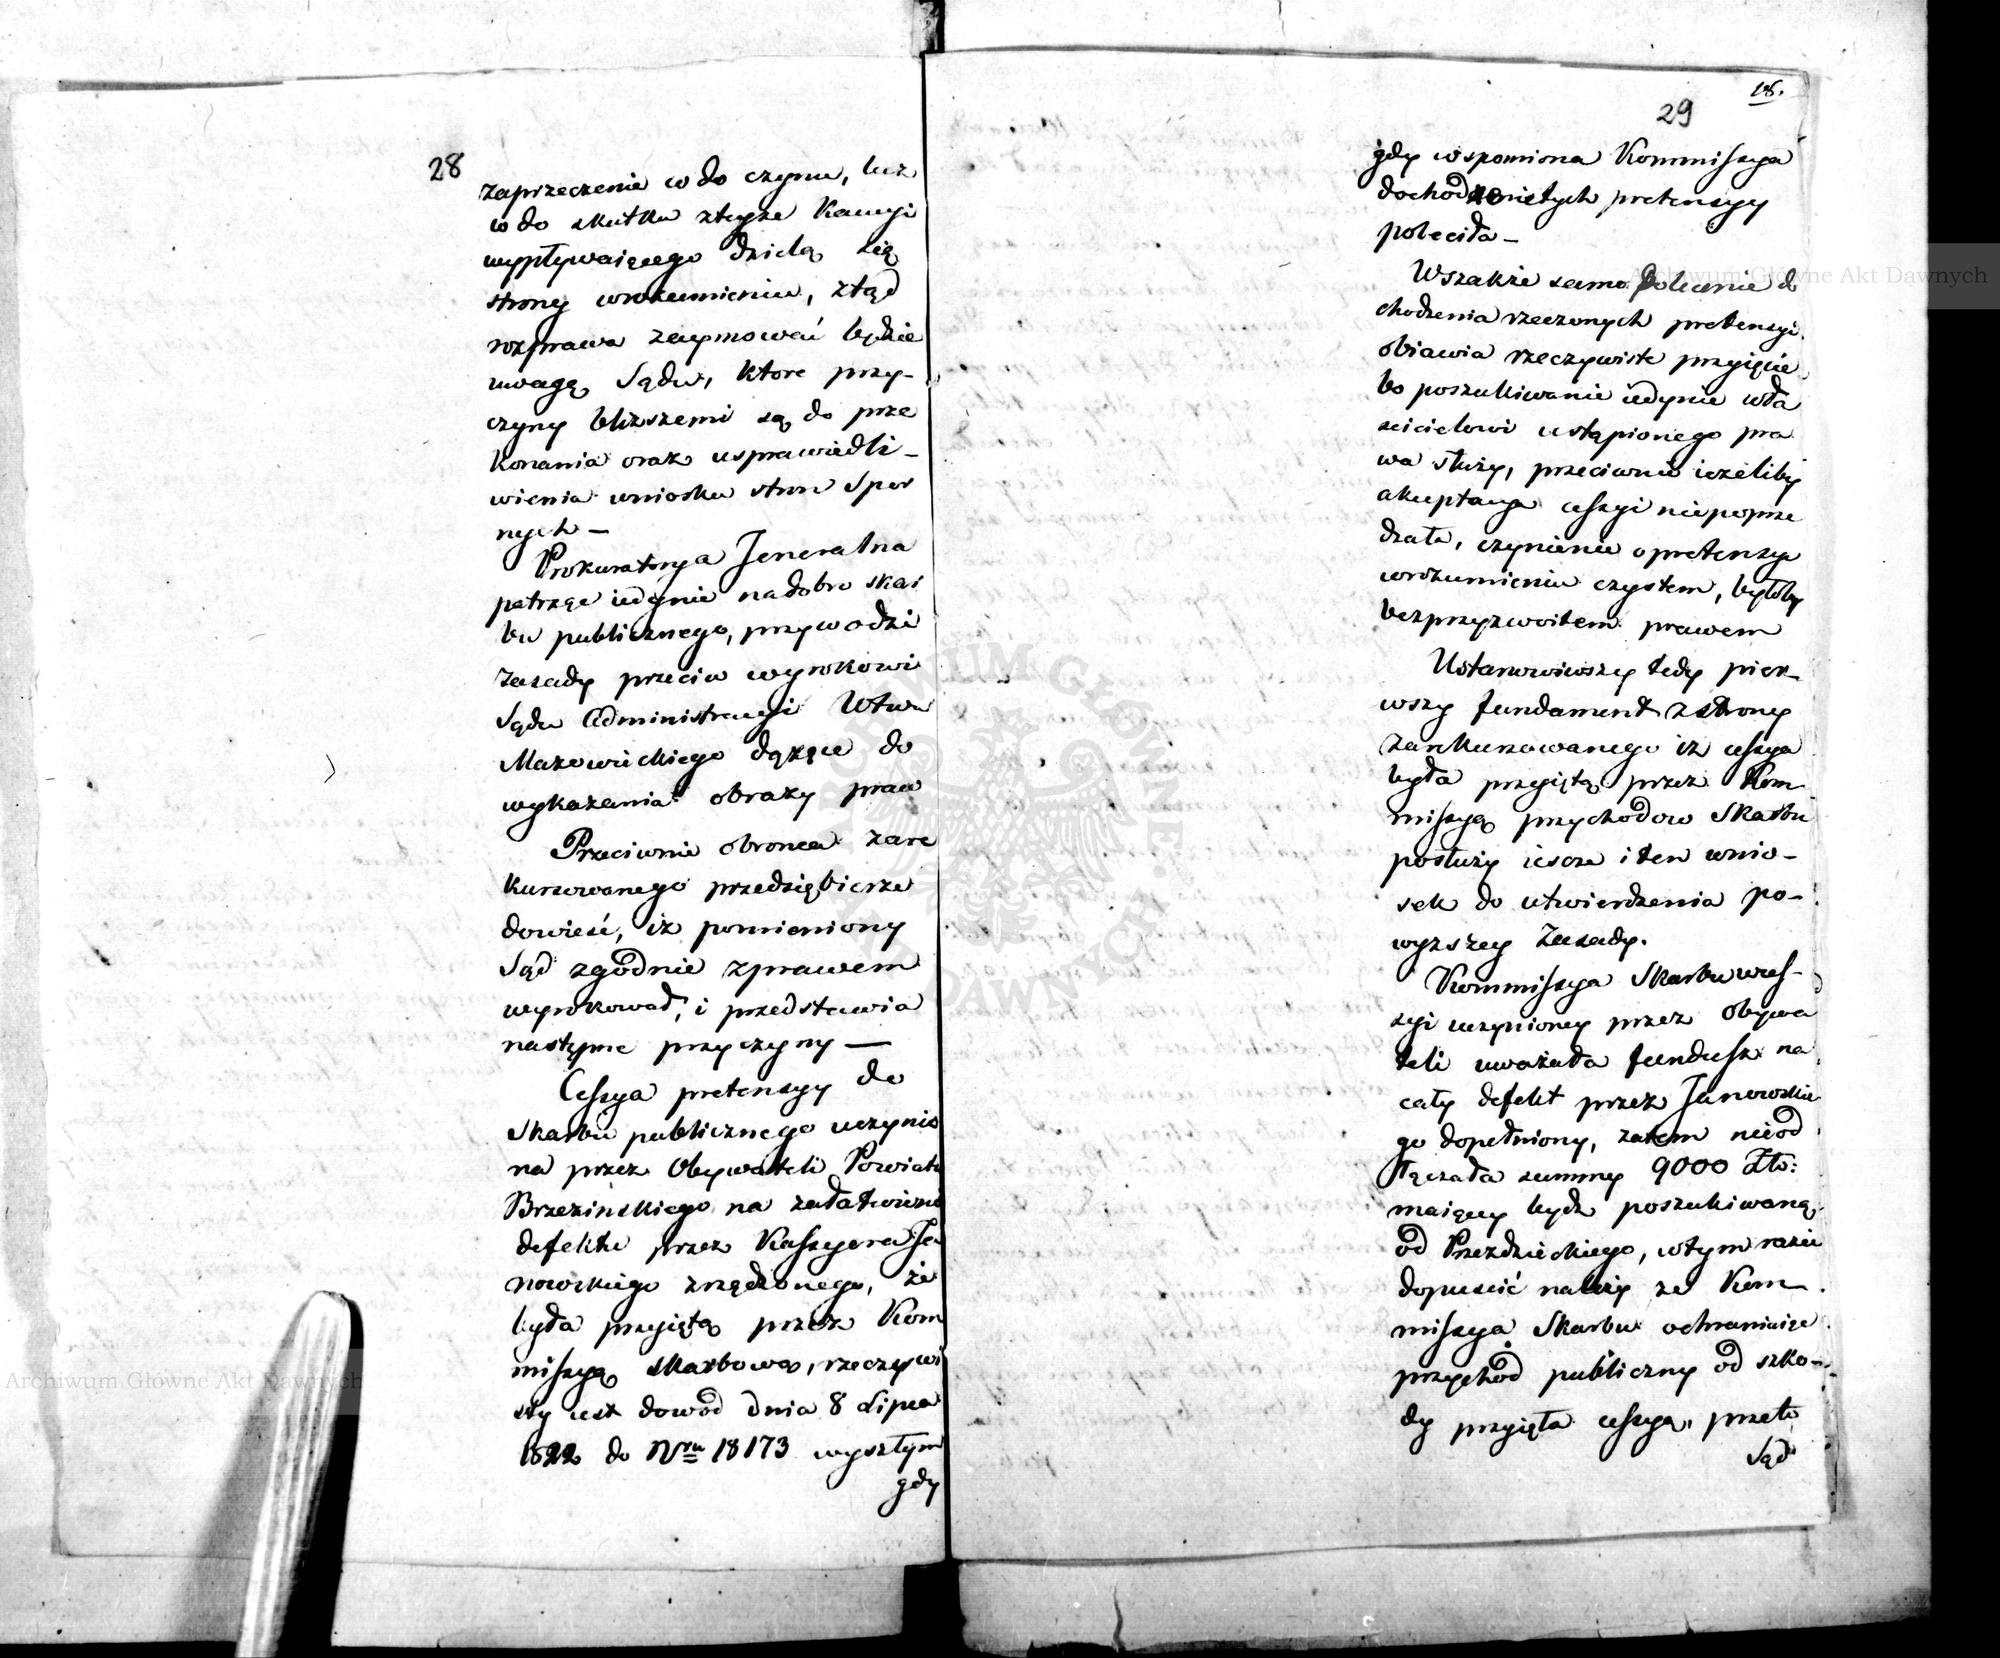 28
zaprzeczenie co do czynu, lecz
co do skutku ztéyże Kaucyi
wypływaiącego dzielą się
strony wrozumieniu, ztąd
rozprawa zaymować będzie
uwagę Sądu, ktore przy-
czyny bliższemi są do prze
konania oraz usprawiedli-
wienia wniosku stron Spor
nych —
Prokuratorya Jeneralna
patrząc iedynie na dobro skar
bu publicznego, przywodzi
Zasady przeciw wyrokowi
Sądu Administracyi Wtwa
Mazowieckiego dążące do
wykazania obrazy praw
Przeciwnie obronca zare
kursowanego przedsiębierze
dowieść, iż pomieniony
Sąd zgodnie zprawem
wyrokował, i przedstawia
następne przyczyny —
Cessya pretensyy do
Skarbu publicznego uczynio
na przez Obywateli Powiatu
Brzezinskiego na załatwienie
defektu przez Kassyera Ja
nowskiego zrządzonego, że
była przyiętą przez Kom
missyą Skarbową, rzeczywi
sty iest dowod dnia 8 Lipca
1822 do Nru 18173 wyszłym
gdy
18.
29
gdy wspomiona Kommissya
dochodzenie tych pretensyy
poleciła —
Wszakże samo Polecenie do
chodzenia rzeczonych pretensyi
obiawia rzeczywiste przyięcie
bo poszukiwanie iedynie wła
scicielowi ustąpionego pra
wa służy, przeciwnie ieżeliby
akceptacya cessyi niepoprze
dzała, czynienie o pretensye
wrozumieniu czystem, byłoby
bezprzyzwoitem prawem
Ustanowiwszy tedy pier-
wszy fundament zstrony
zarekursowanego iż cessya
była przyiętą przez Kom
missyą przychodow Skarbu
posłuży iescze i ten wnio-
sek do utwierdzenia po-
wyzszey Zasady.
Kommissya Skarbu wces-
syi uczynioney przez Obywa
teli uważała fundusz na
cały defekt przez Janowskie
go dopełniony, zatem nieod
łączała summy 9000 Zło:
maiącey bydz poszukiwaną
od Przezdzieckiego, wtym razie
dopuscić należy ze Kom
missya Skarbu ochraniaiąc
przychod publiczny od szko-
dy przyięła cessyą, przeto
Sąd
Archiwum Główne Akt Dawnych
Archiwum Główne Akt Dawnych